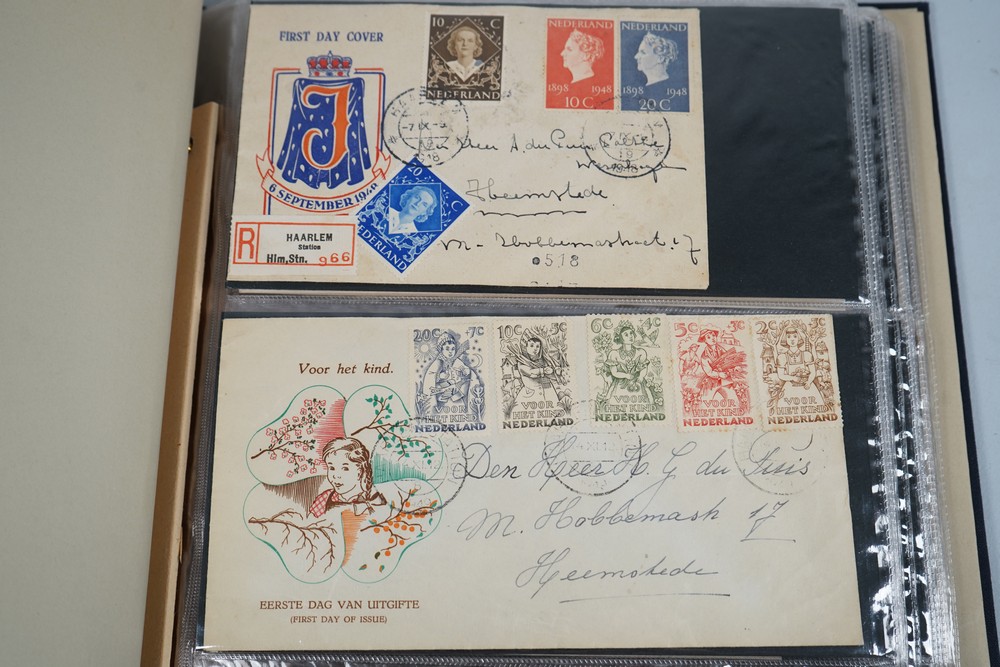 FIRST DAY COVER
10 C
NEDERLAND
NEDERLAND
1898 1948
10 C
NEDERLAND
1898 1948
20 C
J
6 SEPTEMBER 1948
HAARLEM
1948
1948
20 C
NEDERLAND
Heemstede
M. Hobbemastraat 17
518
R
HAARLEM
Station
Hlm,Stn. 966
Voor het kind.
20C +7C
VOOR
HET KIND
NEDERLAND
10C +5C
VOOR
HET KIND
NEDERLAND
6C +4C
VOOR
HET KIND
NEDERLAND
5C +3C
VOOR
HET KIND
NEDERLAND
2C +3C
VOOR
HET KIND
NEDERLAND
Den Heer H. G du Puis
M. Hobbemash 17
Heemstede
EERSTE DAG VAN UITGIFTE
(FIRST DAY OF ISSUE)